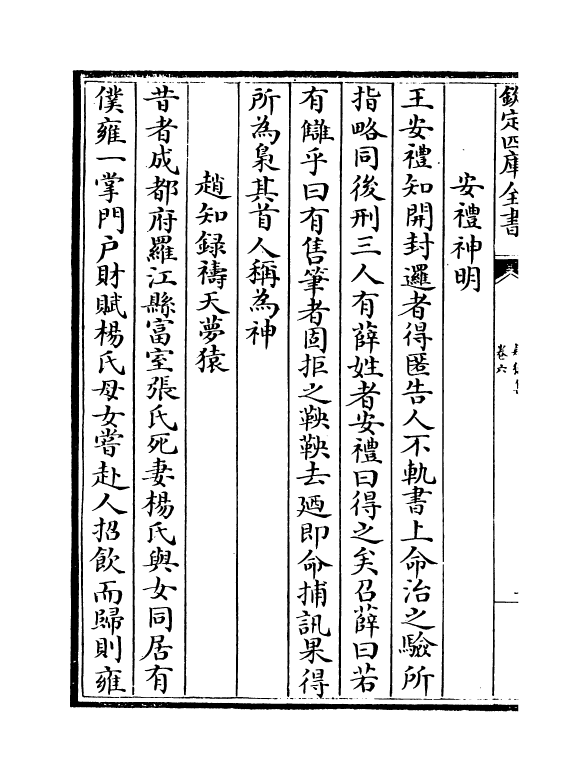 欽定四庫全書
卷六
安禮神明
王安禮知開封邏者得匿告人不軌書上命治之驗所
指略同後刑三人有薛姓者安禮曰得之矣召薛曰若
有讎乎曰有售筆者固拒之鞅鞅去廼即命捕訊果得
所為梟其首人稱為神
趙知錄禱天夢猿
昔者成都府羅江縣富室張氏死妻楊氏與女同居有
僕雍一掌門户財賦楊氏母女嘗赴人招飲而歸則雍